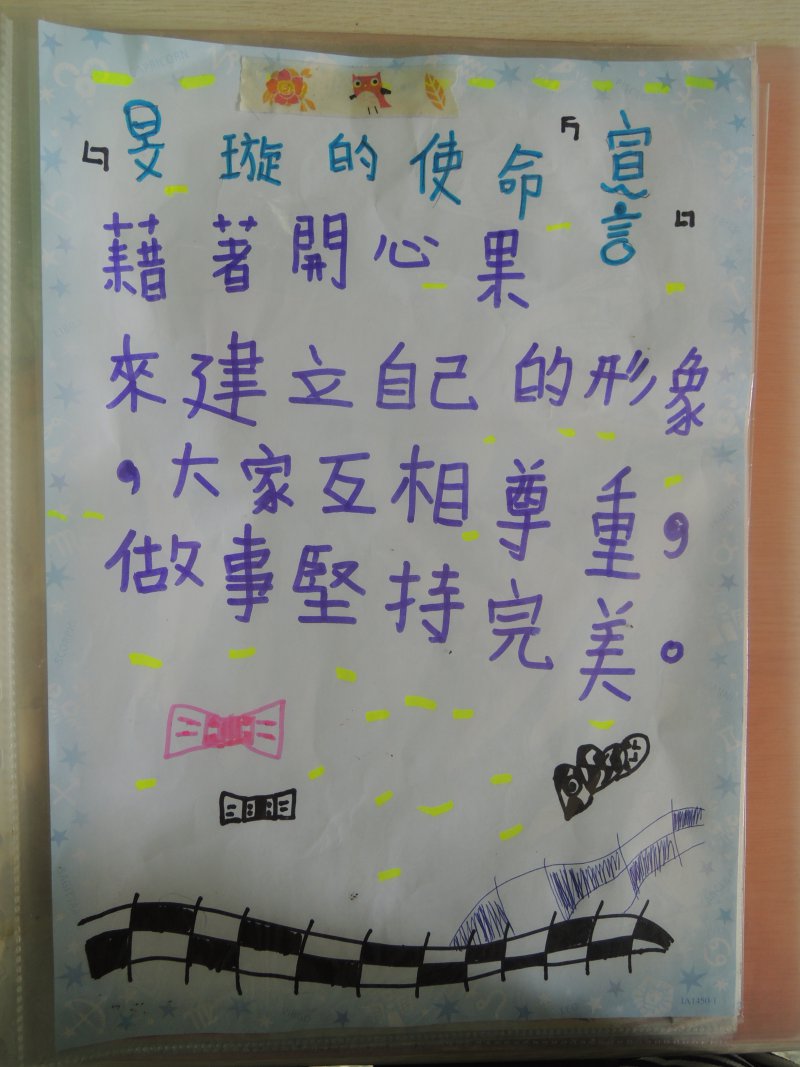 旻璇的使命宣言
藉著開心果
來建立自己的形象
，大家互相尊重，
做事堅持完美。